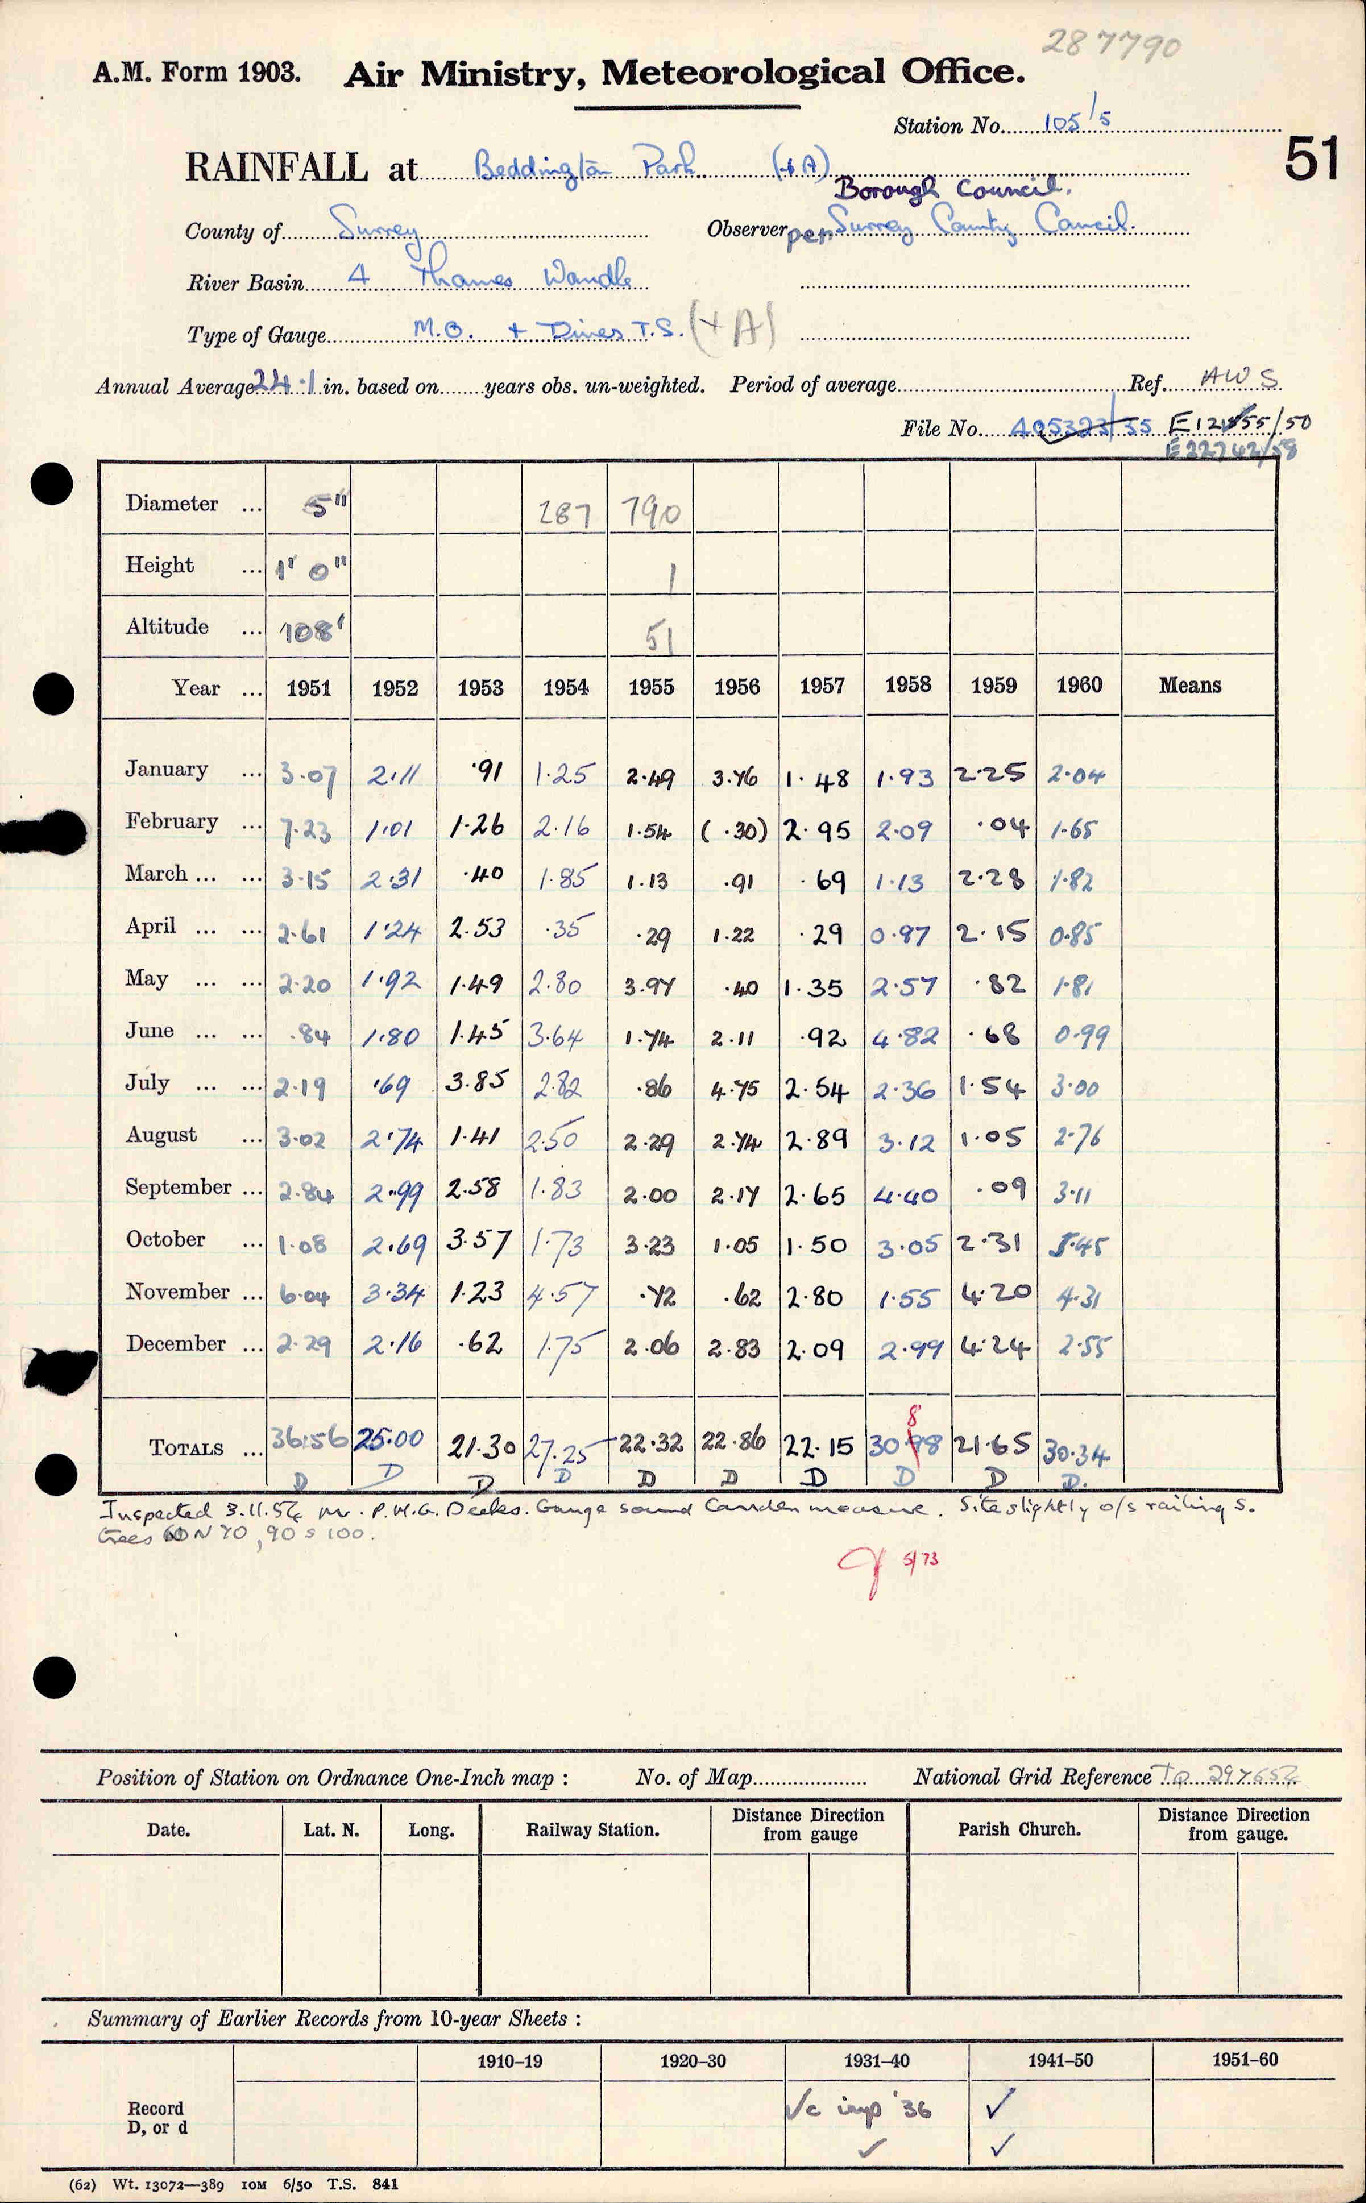 287790
A.M. Form 1903. Air Ministry, Meteorological Office.
Station No. 105/5
51
RAINFALL at Beddington Park (+A)
Borough Council.
County of Surrey Observer per Surrey County Council.
River Basin 4 Thames Wandle
Type of Gauge M.O. + Dines T.S. (+A)
Annual Average 24.1 in. based on years obs. un-weighted. Period of average Ref. AWS
File No. 405323/55 E121555/50
E22742/58
Diameter ... 5" 287 790
Height ... 1' 0" 1
Altitude ... 108' 51
Year ... 1951 1952 1953 1954 1955 1956 1957 1958 1959 1960 Means
January ... 3.07 2.11 .91 1.25 2.49 3.76 1.48 1.93 2.25 2.04
February ... 7.23 1.01 1.26 2.16 1.54 (.30) 2.95 2.09 .04 1.65
March ... ... 3.15 2.31 .40 1.85 1.13 .91 .69 1.13 2.28 1.82
April ... ... 2.61 1.24 2.53 .35 .29 1.22 .29 0.97 2.15 0.85
May ... ... 2.20 1.92 1.49 2.80 3.97 .40 1.35 2.57 .82 1.81
June ... ... .84 1.80 1.45 3.64 1.74 2.11 .92 4.82 .68 0.99
July ... ... 2.19 .69 3.85 2.82 .86 4.75 2.54 2.36 1.54 3.00
August ... 3.02 2.74 1.41 2.50 2.29 2.74 2.89 3.12 1.05 2.76
September ... 2.84 2.99 2.58 1.83 2.00 2.17 2.65 4.40 .09 3.11
October ... 1.08 2.69 3.57 1.73 3.23 1.05 1.50 3.05 2.31 5.45
November ... 6.04 3.34 1.23 4.57 .72 .62 2.80 1.55 4.20 4.31
December ... 2.29 2.16 .62 1.75 2.06 2.83 2.09 2.99 4.24 2.55
8
TOTALS ... 36.56 25.00 21.30 27.25 22.32 22.86 22.15 30.98 21.65 30.34
D D D D D D D D D D.
Inspected 3.11.54 Mr. P.H.G. Deeks. Gauge sound Camden measure. Site slightly o/s railings.
trees 60 N 70, 90 S 100.
5/73
Position of Station on Ordnance One-Inch map : No. of Map National Grid Reference TQ 297652
Date. Lat. N. Long. Railway Station. Distance Direction from gauge Parish Church. Distance Direction from gauge.
Summary of Earlier Records from 10-year Sheets :
1910–19 1920–30 1931–40 1941–50 1951–60
Record D, or d √c inyp '36 ✓
✓ ✓
(62) Wt. 13072—389 10M 6/50 T.S. 841